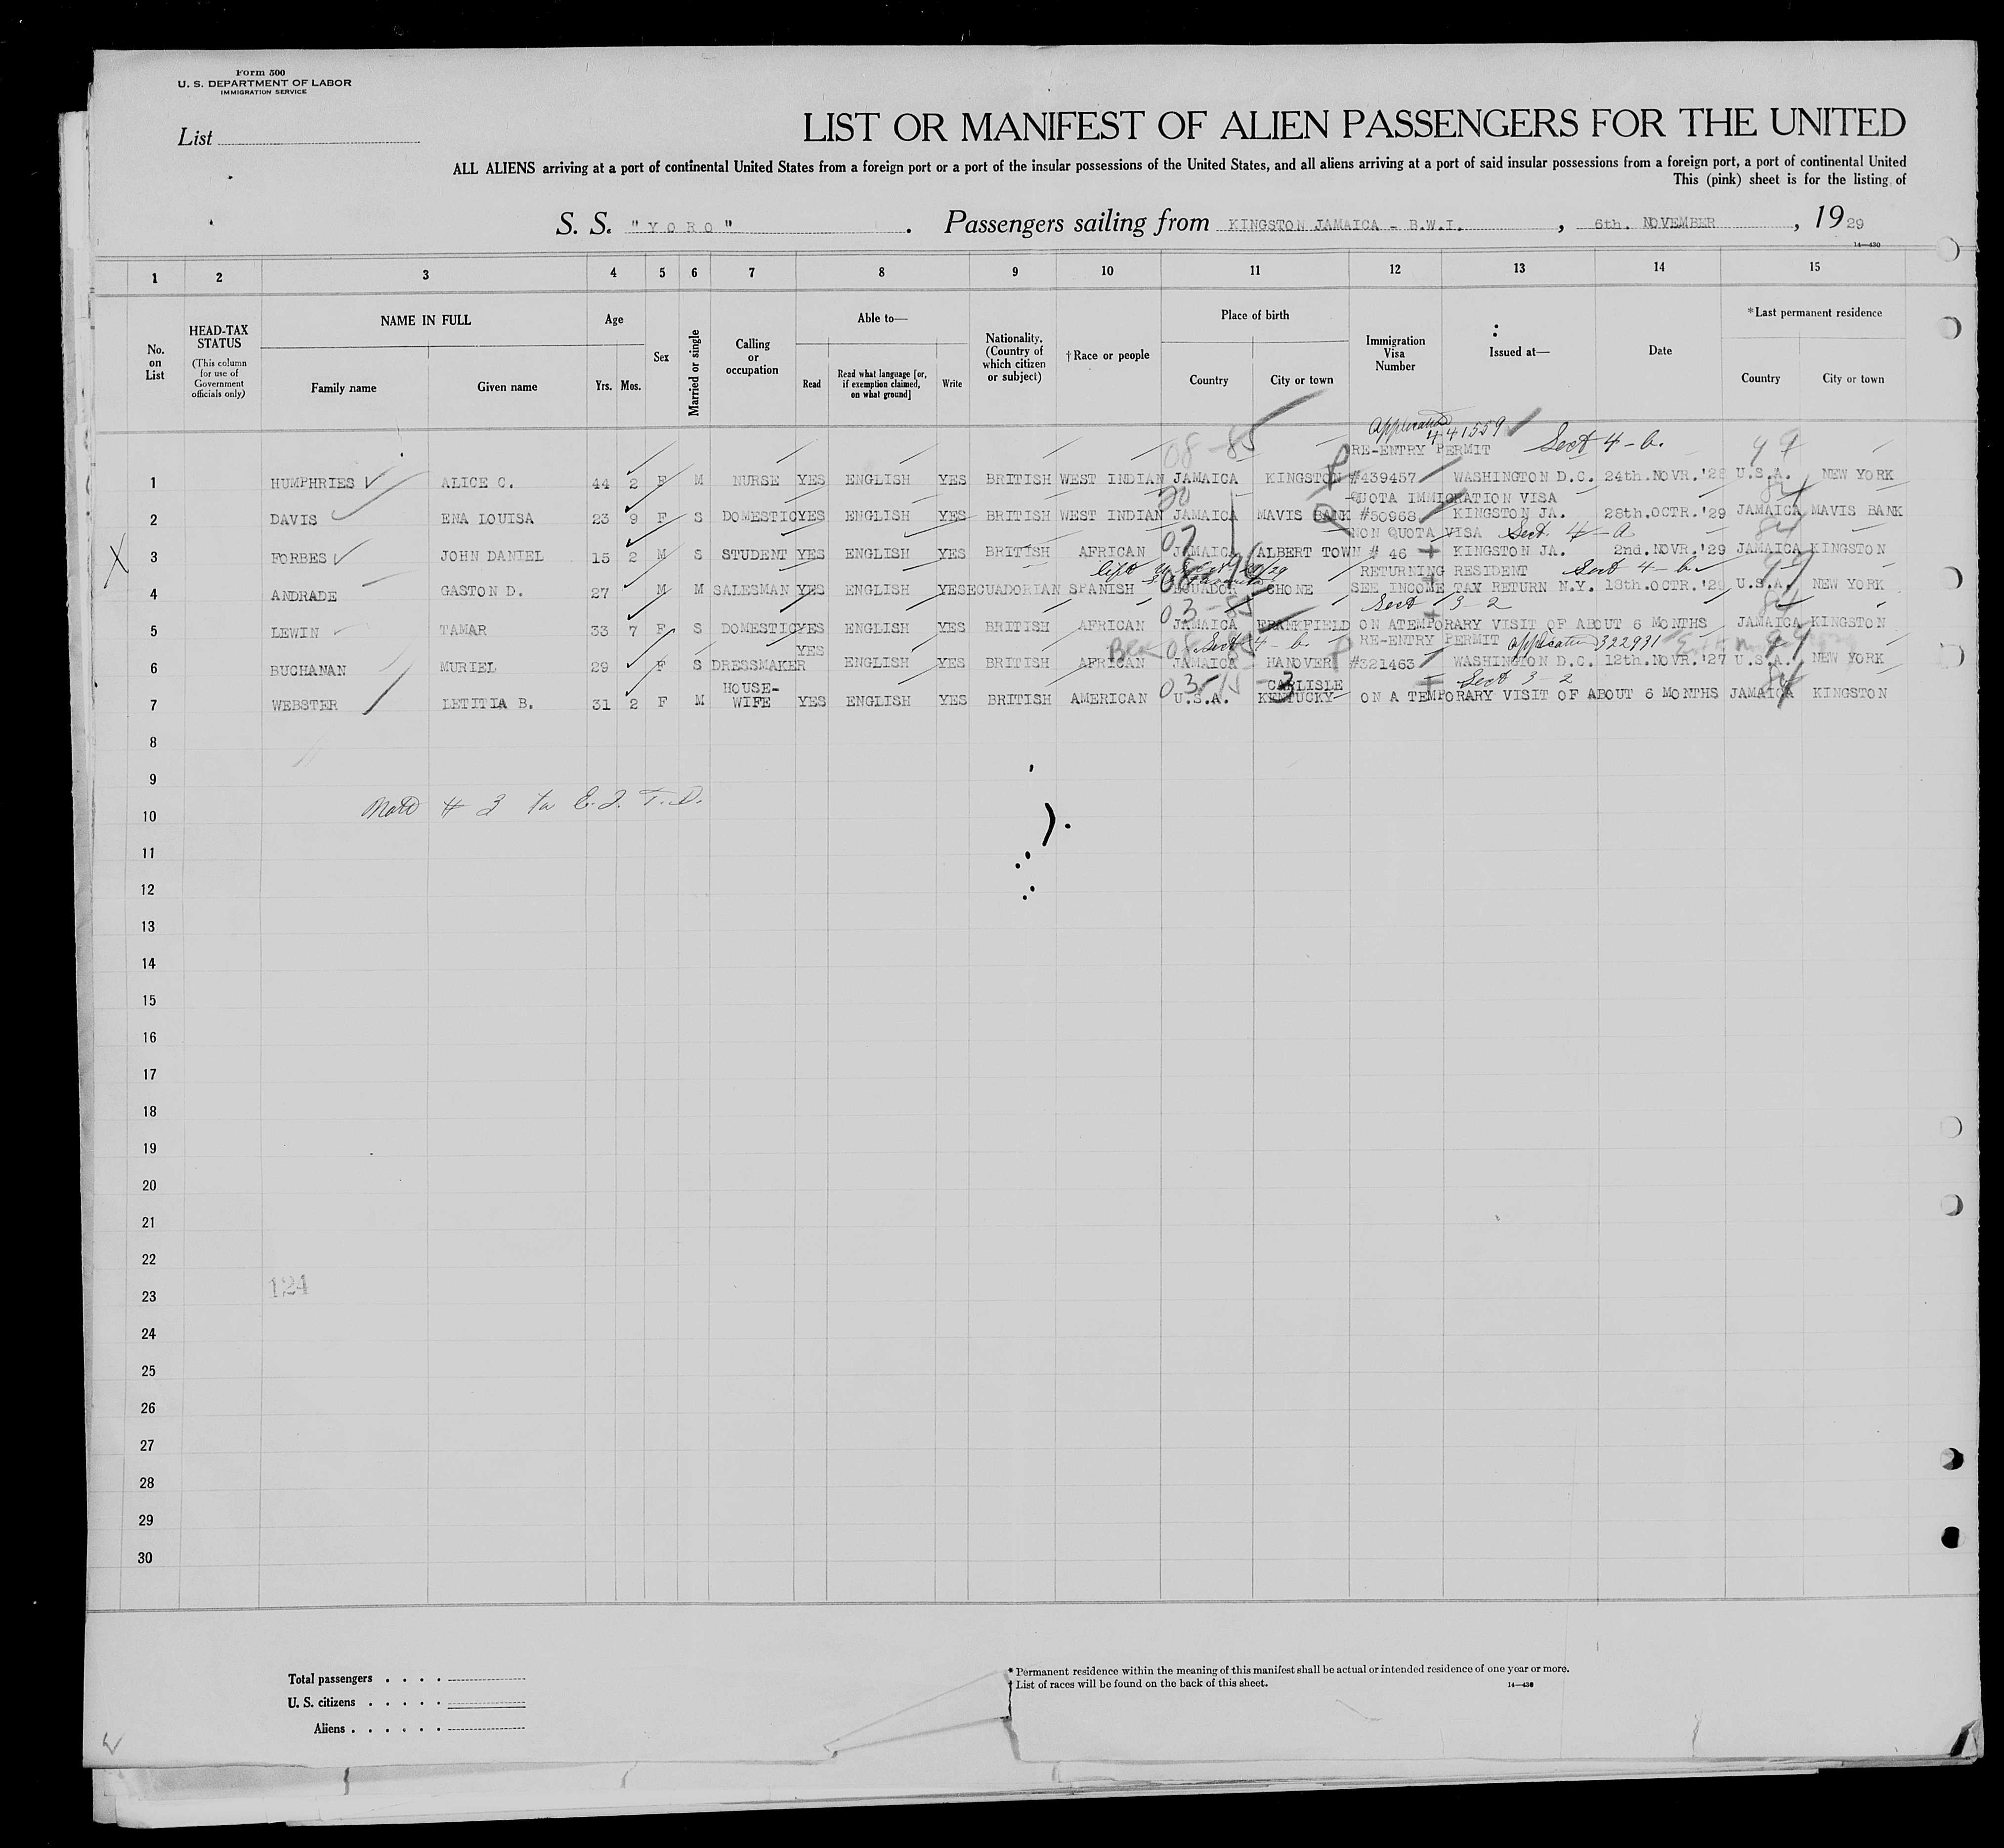 Form 500
U. S. DEPARTMENT OF LABOR
IMMIGRATION SERVICE
List
LIST OR MANIFEST OF ALIEN PASSENGERS FOR THE UNITED
ALL ALIENS arriving at a port of continental United States from a foreign port or a port of the insular possessions of the United States, and all aliens arriving at a port of said insular possessions from a foreign port, a port of continental United
This (pink) sheet is for the listing of
S. S. "YORO". Passengers sailing from KINGSTON JAMAICA - B.W.I., 6th. NOVEMBER, 1929
14—430
1 2 3 4 5 6 7 8 9 10 11 12 13 14 15
No. on List
HEAD-TAX STATUS (This column for use of Government officials only)
NAME IN FULL Family name Given name
Age Yrs. Mos.
Sex
Married or single
Calling or occupation
Able to— Read Read what language [or, if exemption claimed, on what ground] Write
Nationality. (Country of which citizen or subject)
†Race or people
Place of birth Country City or town
Immigration Visa Number
Issued at—
Date
*Last permanent residence Country City or town
441559 Sect 4-b.
08-85 RE-ENTRY PERMIT
1 HUMPHRIES ALICE C. 44 2 F M NURSE YES ENGLISH YES BRITISH WEST INDIAN JAMAICA KINGSTON #439457 WASHINGTON D.C. 24th.NOVR.'28 U.S.A. NEW YORK
QUOTA IMMIGRATION VISA
2 DAVIS ENA LOUISA 23 9 F S DOMESTIC YES ENGLISH YES BRITISH WEST INDIAN JAMAICA MAVIS BANK #50968 KINGSTON JA. 28th.OCTR.'29 JAMAICA MAVIS BANK
NON QUOTA VISA Sect 4-a
3 FORBES JOHN DANIEL 15 2 M S STUDENT YES ENGLISH YES BRITISH AFRICAN JAMAICA ALBERT TOWN # 46 KINGSTON JA. 2nd.NOVR.'29 JAMAICA KINGSTON
RETURNING RESIDENT Sect 4-b
4 ANDRADE GASTON D. 27 M M SALESMAN YES ENGLISH YES ECUADORIAN SPANISH ECUADOR CHONE SEE INCOME TAX RETURN N.Y. 18th.OCTR.'29 U.S.A. NEW YORK
03-85 Sect 3-2
5 LEWIN TAMAR 33 7 F S DOMESTIC YES ENGLISH YES BRITISH AFRICAN JAMAICA FRANKFIELD ON ATEMPORARY VISIT OF ABOUT 6 MONTHS JAMAICA KINGSTON
Sect 4-b. RE-ENTRY PERMIT 322931
6 BUCHANAN MURIEL 29 F S DRESSMAKER YES ENGLISH YES BRITISH AFRICAN JAMAICA HANOVER #321463 WASHINGTON D.C. 12th.NOVR.'27 U.S.A. NEW YORK
Sect 3-2
7 WEBSTER LETITIA B. 31 2 F M HOUSE-WIFE YES ENGLISH YES BRITISH AMERICAN U.S.A. CARLISLE KENTUCKY ON A TEMPORARY VISIT OF ABOUT 6 MONTHS JAMAICA KINGSTON
8
9
10
11
12
13
14
15
16
17
18
19
20
21
22
124
23
24
25
26
27
28
29
30
Total passengers
U. S. citizens
Aliens
* Permanent residence within the meaning of this manifest shall be actual or intended residence of one year or more.
† List of races will be found on the back of this sheet.
14—430